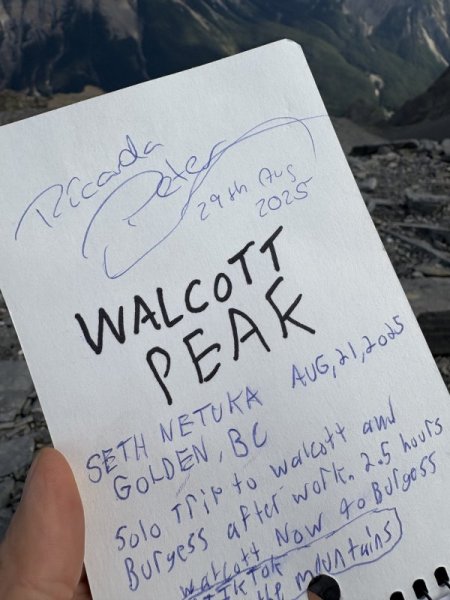 Ricarda
Peter
29th Aug
2025
WALCOTT
PEAK
SETH NETUKA AUG, 21, 2025
GOLDEN, BC
Solo Trip to walcott and
Burgess after work. 2.5 hours
walcott Now to Burgess
TIKTOK
the mountains